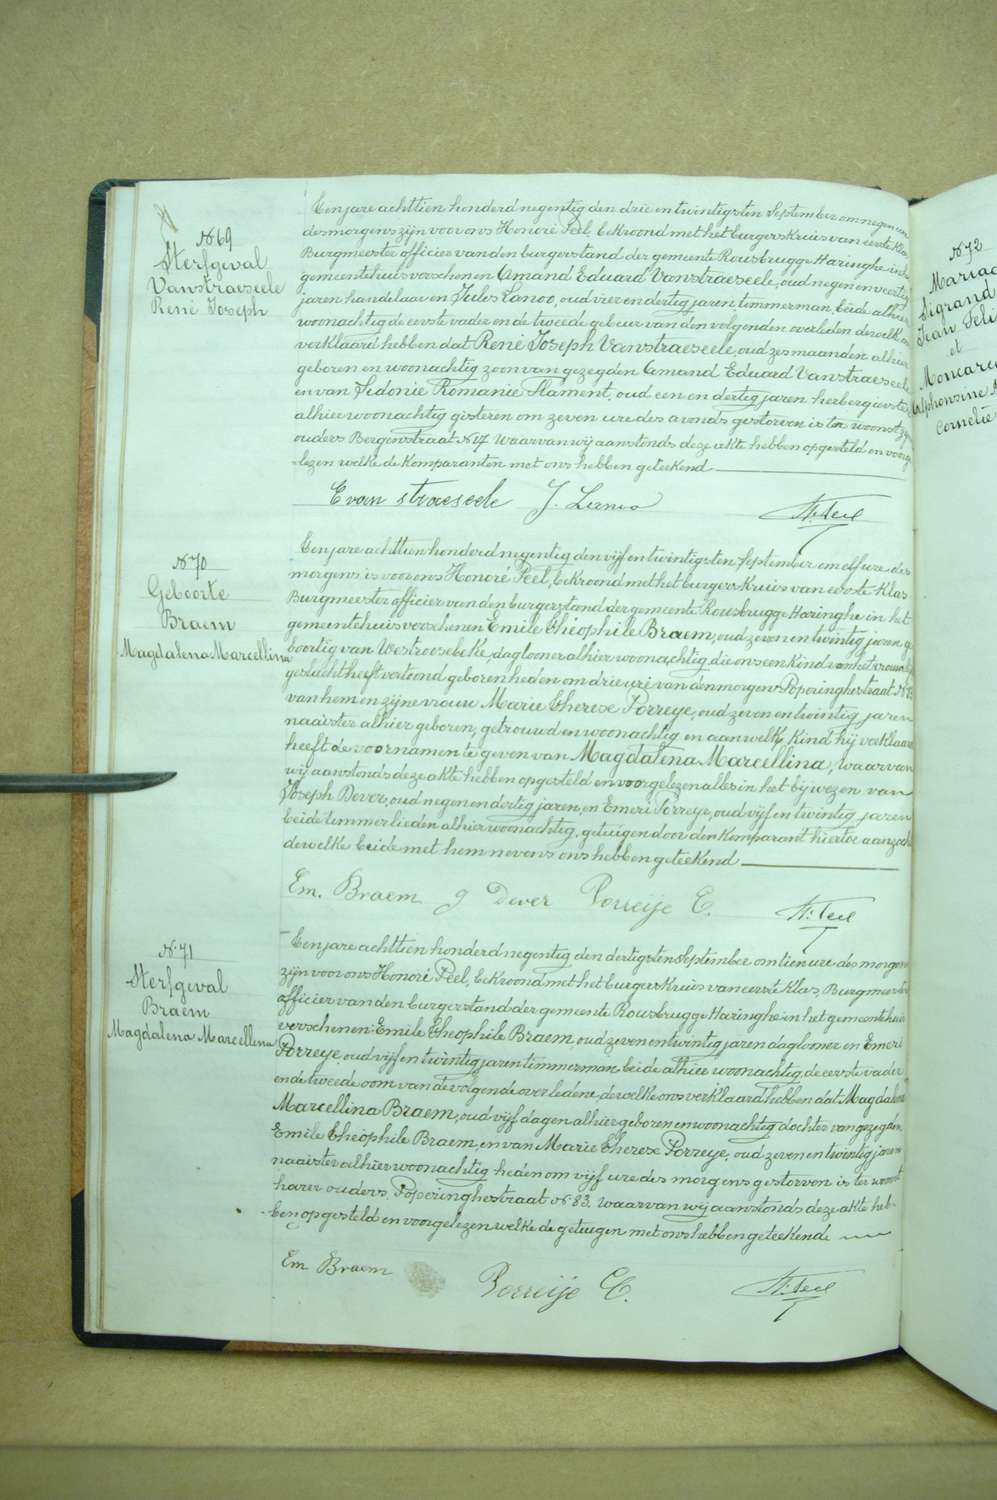 N° 69
Sterfgeval
Vanstraeseele
René Joseph
Een jare achttien honderd negentig den drie en twintigsten September om negen ure
des morgens zijn voor ons Honoré Peel, bekroond met het burgerskruis van eerste klas
Burgmeester officier van den burgerstand der gemeente Rousbrugge Haringhe in het
gemeentehuis verschenen Amand Eduard Vanstraeseele, oud negen en veertig
jaren handelaar en Jules Lanoo, oud vier en dertig jaren timmerman, beide alhier
woonachtig de eerste vader en de tweede gebuur van den volgenden overleden dewelk ons
verklaard hebben dat René Joseph Vanstraeseele, oud zes maanden alhier
geboren en woonachtig zoon van gezegden Amand Eduard Vanstraeseele
en van Sidonie Romanie Flament, oud een en dertig jaren herbergierster
alhier woonachtig gisteren om zeven ure des avonds gestorven is ter woonst zijner
ouders Bergenstraat N° 17. Waarvan wij aanstonds deze akte hebben opgesteld en voorge
lezen welke de komparanten met ons hebben geteekend
E van straeseele J. Lanoo H. Peel
N° 70
Geboorte
Braem
Magdalena Marcellina
Een jare achttien honderd negentig den vijf en twintigsten September om elf ure des
morgens is voor ons Honoré Peel, bekroond met het burgerskruis van eerste klas
Burgmeester officier van den burgerstand der gemeente Rousbrugge Haringhe in het
gemeentehuis verschenen Emile Théophile Braem, oud zeven en twintig jaren, ge
boortig van Westroosebeke, daglooner alhier woonachtig die ons een kind van het vrouwelijk
geslacht heeft vertoond geboren heden om drie ure van den morgen Poperinghestraat N° 83
van hem en zijne vrouw Marie Therese Porreye, oud zeven en twintig jaren
naaister alhier geboren, getrouwd en woonachtig en aan welk kind hij verklaard
heeft de voornamen te geven van Magdalena Marcellina, waarvan
wij aanstonds deze akte hebben opgesteld en voorgelezen alles in het bijwezen van
Joseph Dever, oud negen en dertig jaren, en Emeri Porreye, oud vijf en twintig jaren
beide timmerlieden alhier woonachtig, getuigen door den komparant hiertoe aanzocht
dewelke beide met hem nevens ons hebben geteekend
Em. Braem J Dever Porreije E. H. Peel
N° 71
Sterfgeval
Braem
Magdalena Marcellina
Een jare achttien honderd negentig den dertigsten September om tien ure des morgens
zijn voor ons Honoré Peel, bekroond met het burgerskruis van eerste klas, Burgmeester
officier van den burgerstand der gemeente Rousbrugge Haringhe in het gemeentehuis
verschenen: Emile Théophile Braem oud zeven en twintig jaren daglooner en Emeri
Porreye oud vijf en twintig jaren timmerman, beide alhier woonachtig, de eerste vader
en de tweede oom van de volgende overledene, dewelke ons verklaard hebben dat Magdalena
Marcellina Braem, oud vijf dagen alhier geboren en woonachtig dochter van gezegden
Emile Théophile Braem, en van Marie Therese Porreye, oud zeven en twintig jaren
naaister alhier woonachtig heden om vijf ure des morgens gestorven is ter woonst
harer ouders, Poperinghestraat N° 83. Waarvan wij aanstonds deze akte heb-
ben opgesteld en voorgelezen welke de getuigen met ons hebben geteekend
Em Braem Porreije E. H. Peel
N° 72
Sigrand
Jean
et
Alphonsine